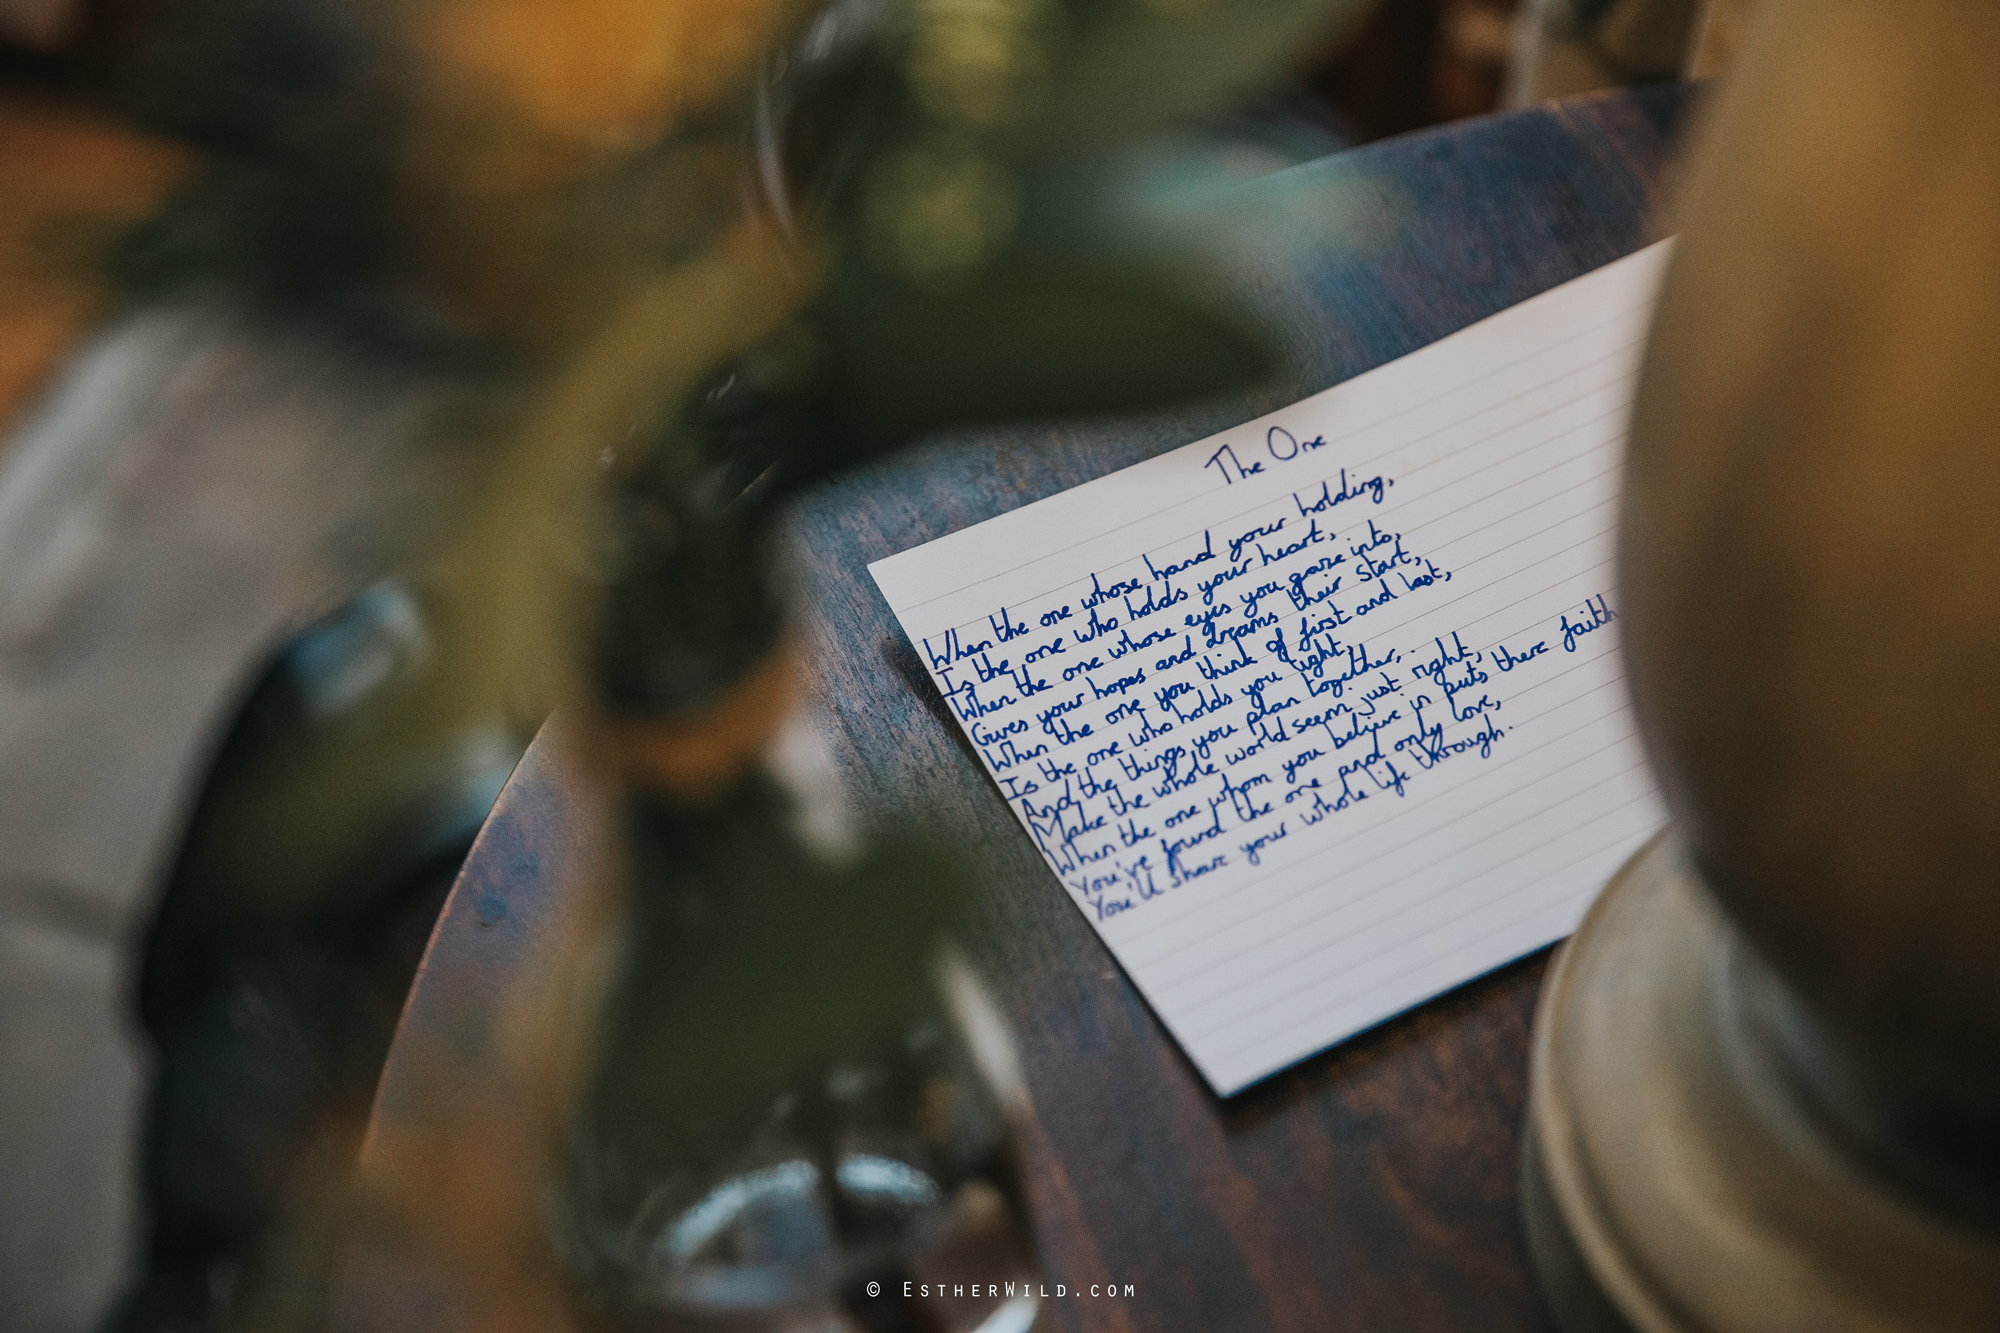 The One
When the one whose hand your holding,
Is the one who holds your heart,
When the one whose eyes you gaze into,
Gives your hopes and dreams their start,
When the one you think of first and last,
Is the one who holds you tight,
And the things you plan together,
Make the whole world seem just right,
When the one whom you believe in puts there faith
You've found the one and only love,
You'll share your whole life through.
© ESTHERWILD.COM